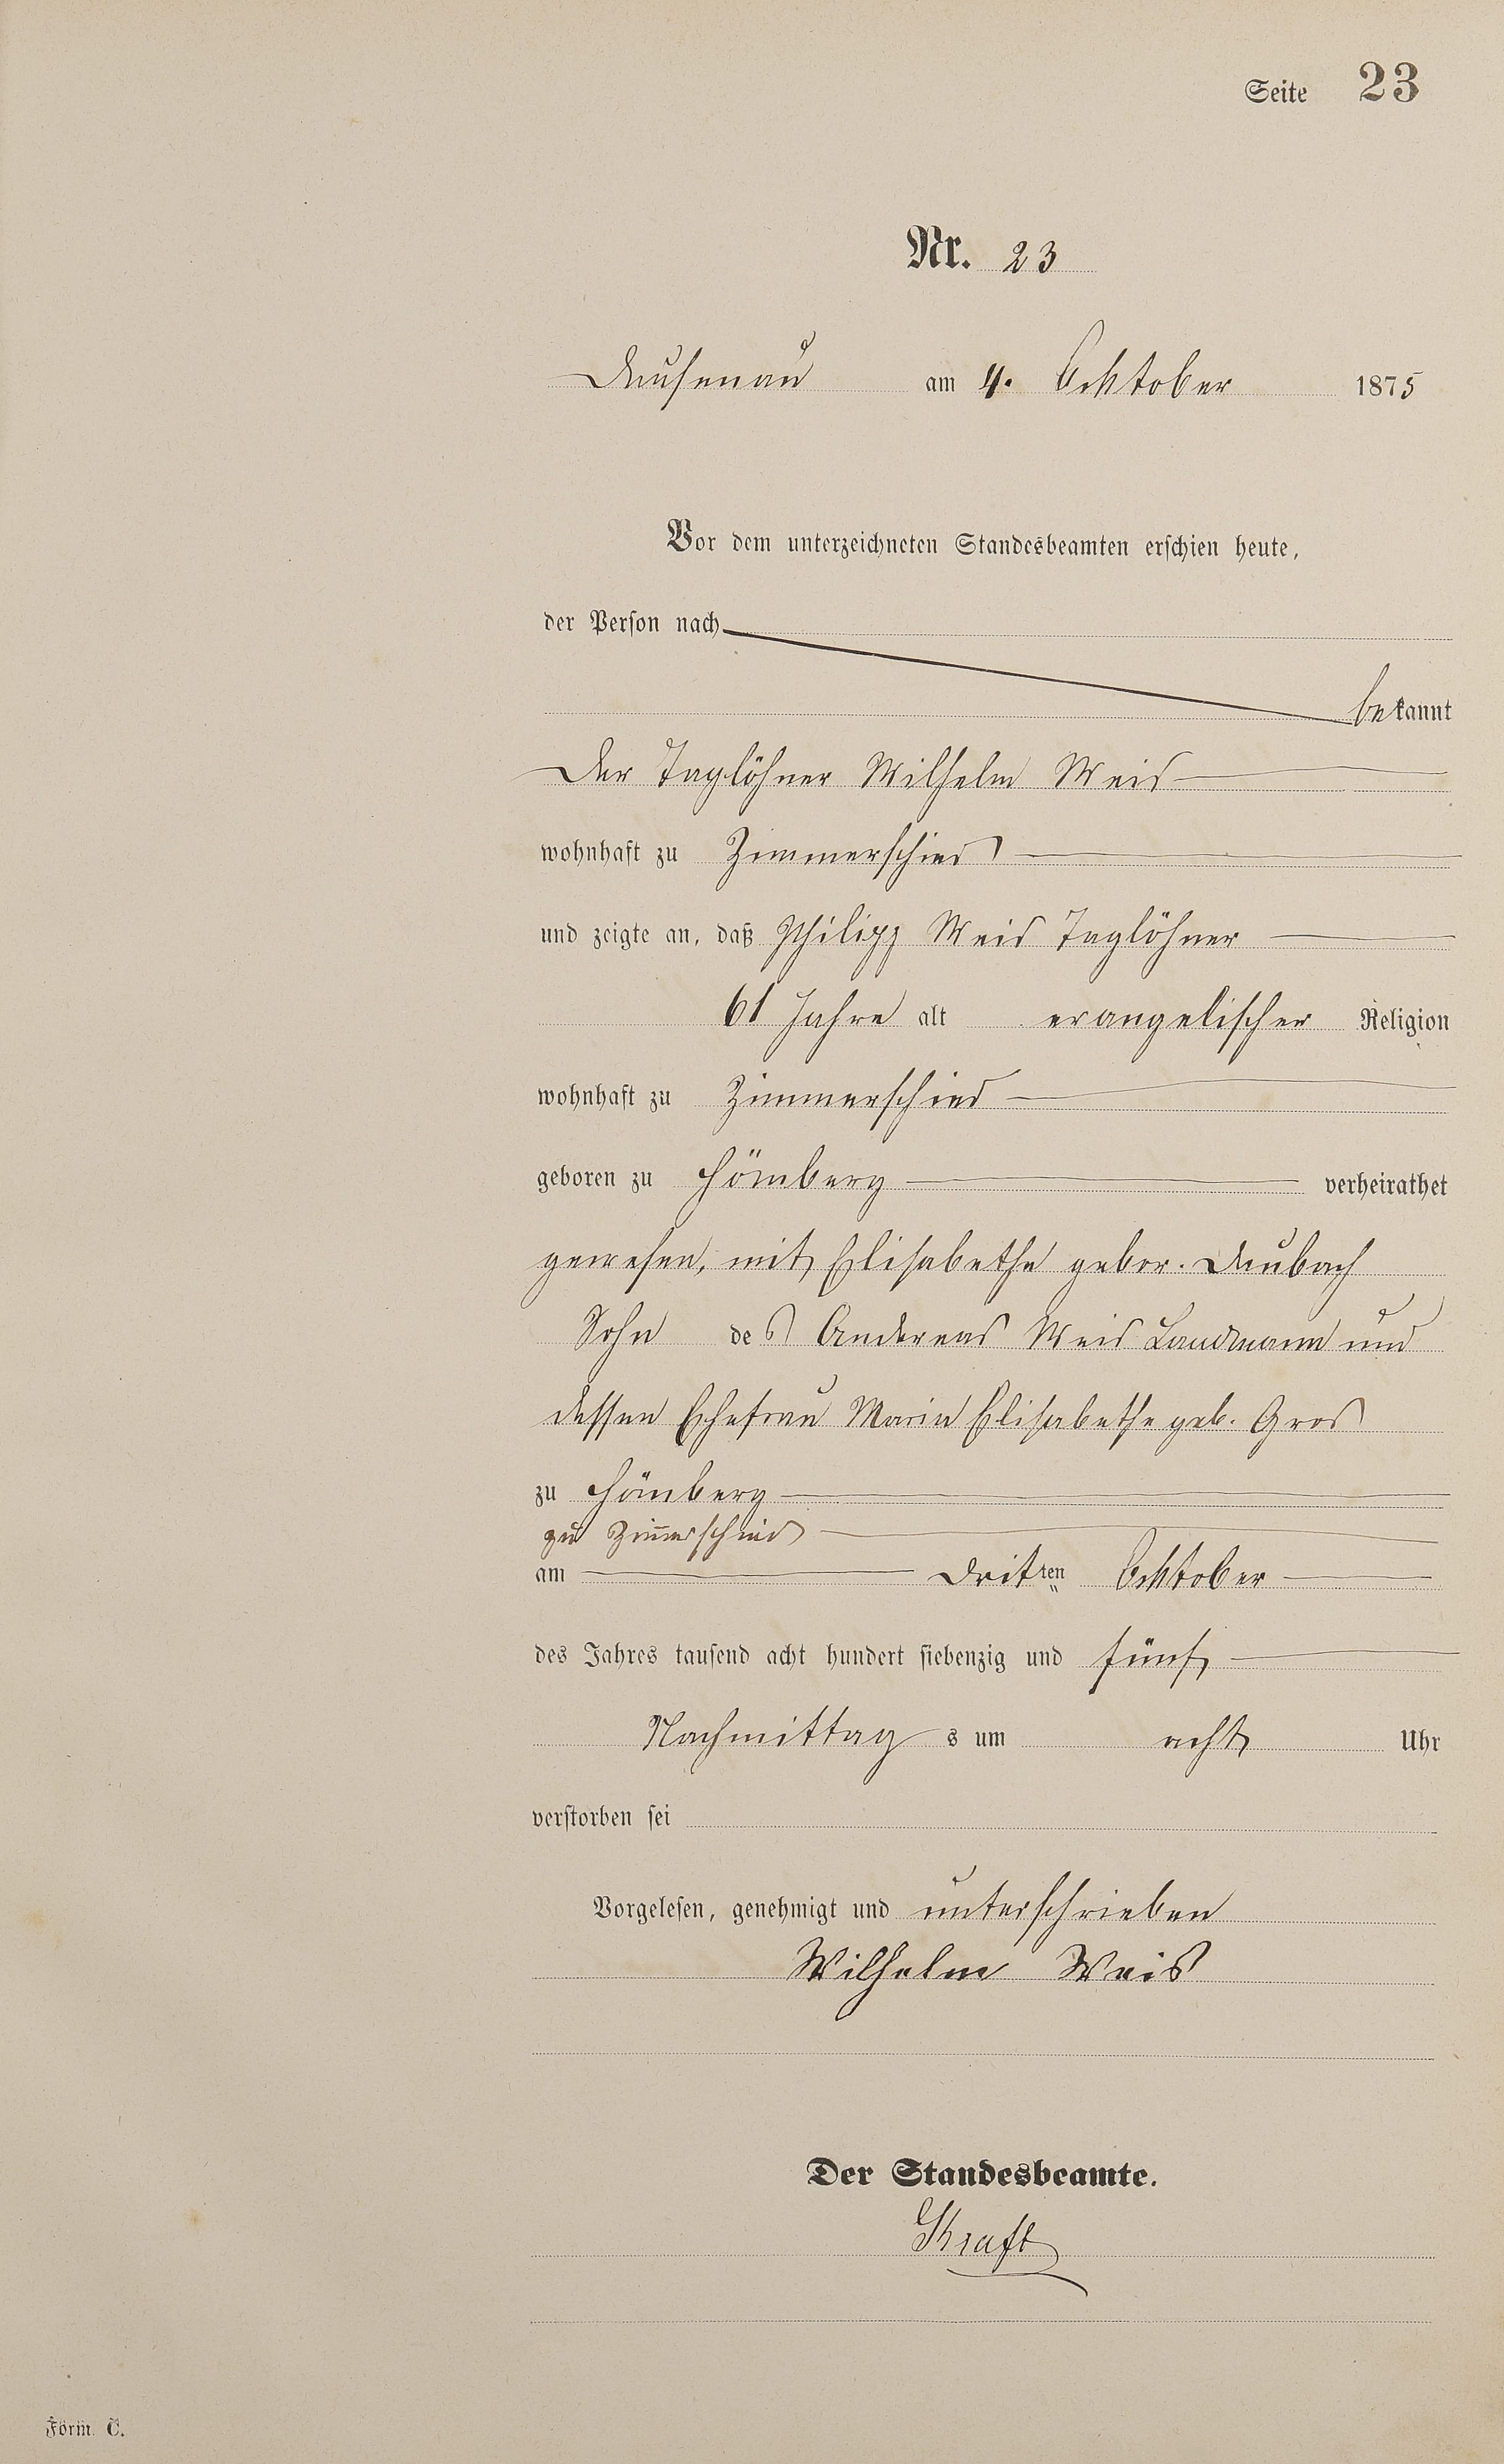 Seite 23
Nr. 23
Dausenau am 4. Ocktober 1875
Vor dem unterzeichneten Standesbeamten erschien heute,
der Person nach
bekannt
Der Taglöhner Wilhelm Weis
wohnhaft zu Zimmerschied
und zeigte an, daß Philipp Weis Taglöhner
61 Jahre alt evangelischer Religion
wohnhaft zu Zimmerschied
geboren zu Hömberg verheirathet
gewesen, mit Elisabetha gebor. Daubach
Sohn des Andereas Weis Landmann und
dessen Ehefrau Maria Elisabethe geb. Gros
zu Hömberg
zu Zim̄erschied
am Dritten Ocktober
des Jahres tausend acht hundert siebenzig und fünf
Nachmittag s um acht Uhr
verstorben sei
Vorgelesen, genehmigt und unterschrieben
Wilhelm Weis
Der Standesbeamte.
Kraft
Form. C.